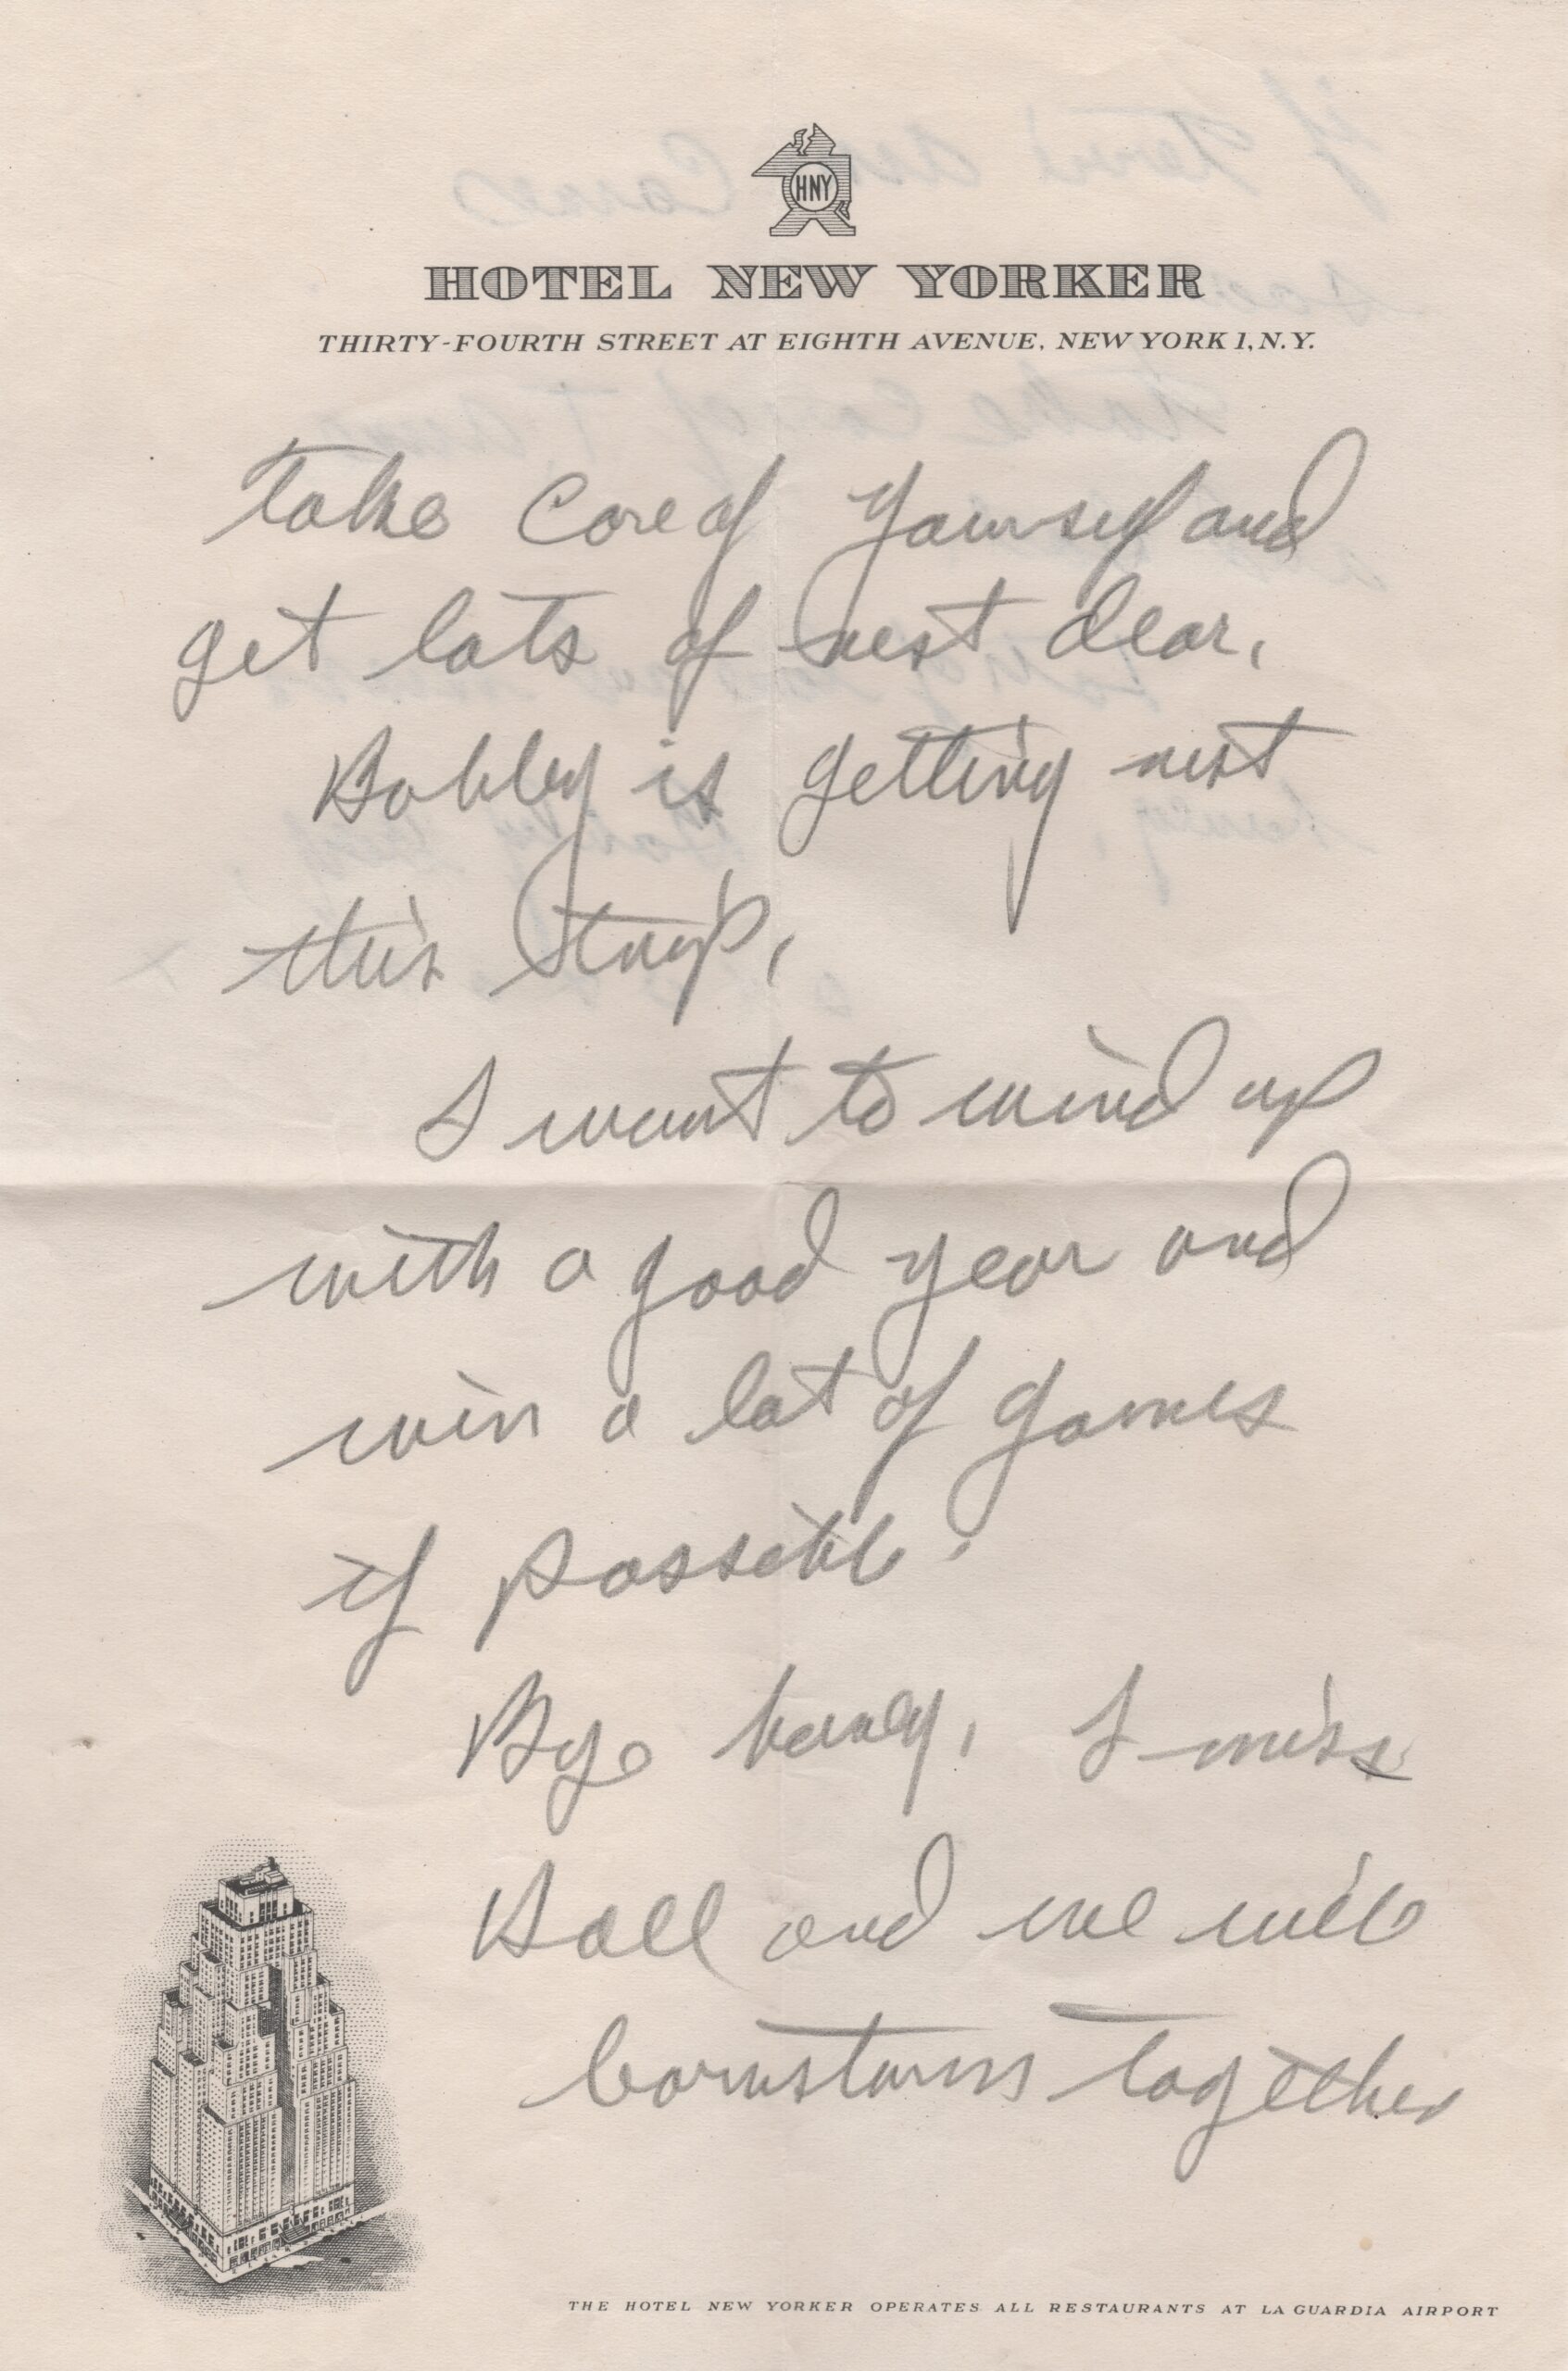 HNY
HOTEL NEW YORKER
THIRTY-FOURTH STREET AT EIGHTH AVENUE, NEW YORK 1, N.Y.
Take Care of Yourself and
get lots of rest dear,
Bobby is getting rest
this trip,
I want to wind up
with a good year and
win a lot of games
if possible.
Bye honey, I miss
Hall and we will
barnstorm together
THE HOTEL NEW YORKER OPERATES ALL RESTAURANTS AT LA GUARDIA AIRPORT